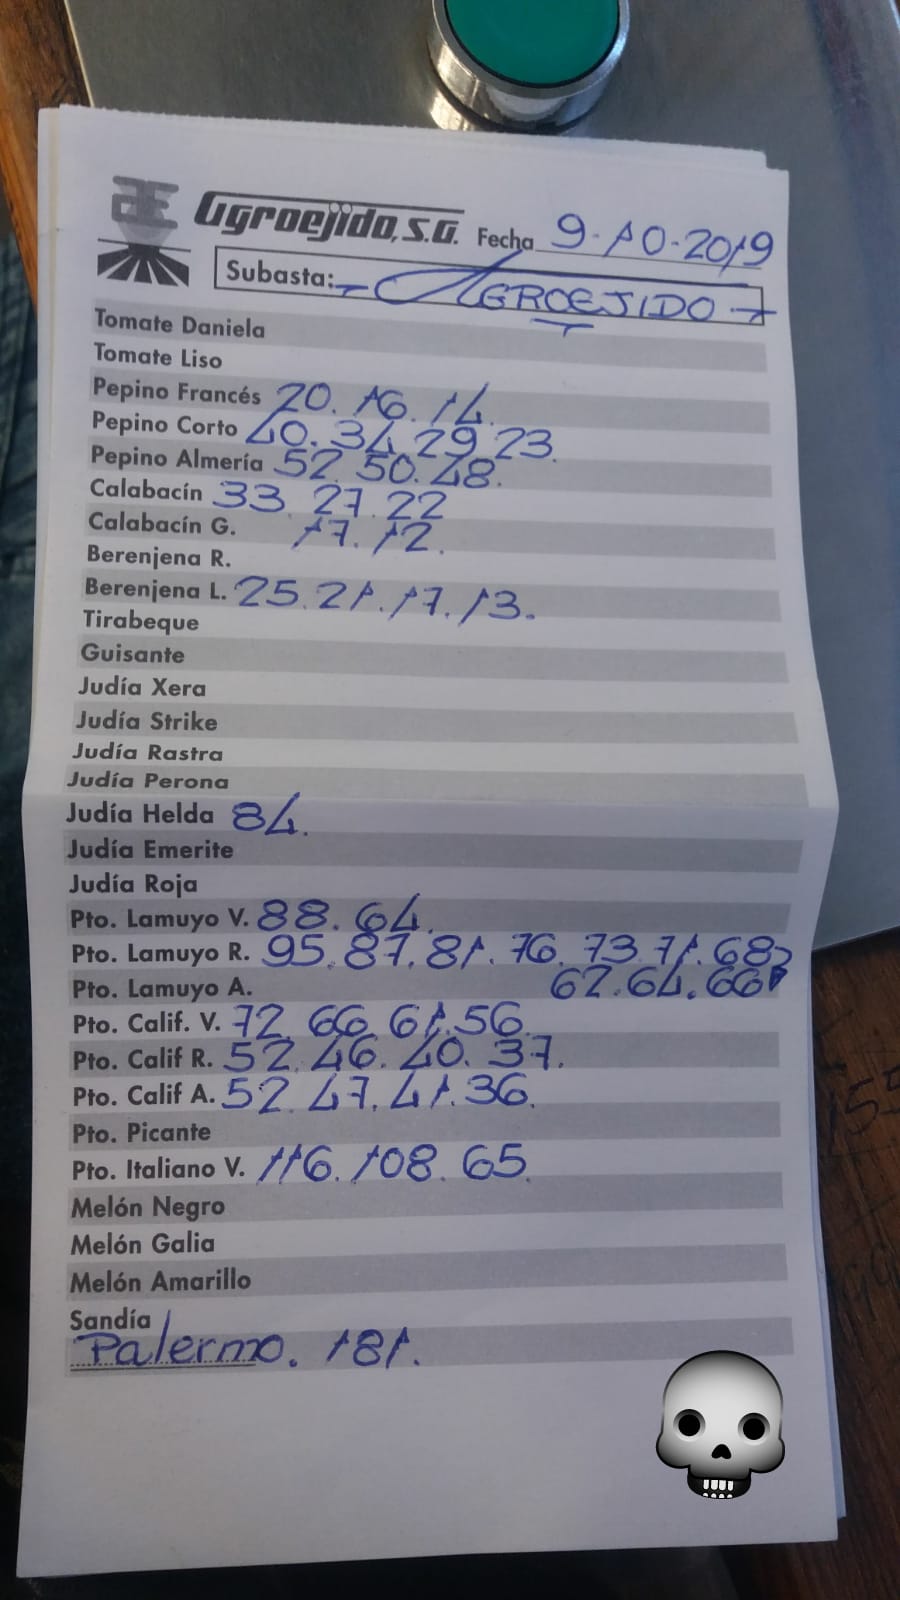 Agroejido, S.A. Fecha 9-10-2019
Subasta: - AGROEJIDO -
Tomate Daniela
Tomate Liso
Pepino Francés 20. 16. 14.
Pepino Corto 40. 34. 29. 23.
Pepino Almería 52. 50. 48.
Calabacín 33. 27. 22
Calabacín G. 17. 12.
Berenjena R.
Berenjena L. 25. 21. 17. 13.
Tirabeque
Guisante
Judía Xera
Judía Strike
Judía Rastra
Judía Perona
Judía Helda 84.
Judía Emerite
Judía Roja
Pto. Lamuyo V. 88. 64.
Pto. Lamuyo R. 95. 87. 81. 76. 73. 71. 68
Pto. Lamuyo A. 62. 64. 66
Pto. Calif. V. 72. 66. 61. 56.
Pto. Calif R. 52. 46. 40. 37.
Pto. Calif A. 52. 47. 41. 36.
Pto. Picante
Pto. Italiano V. 116. 108. 65.
Melón Negro
Melón Galia
Melón Amarillo
Sandía
Palermo. 181.